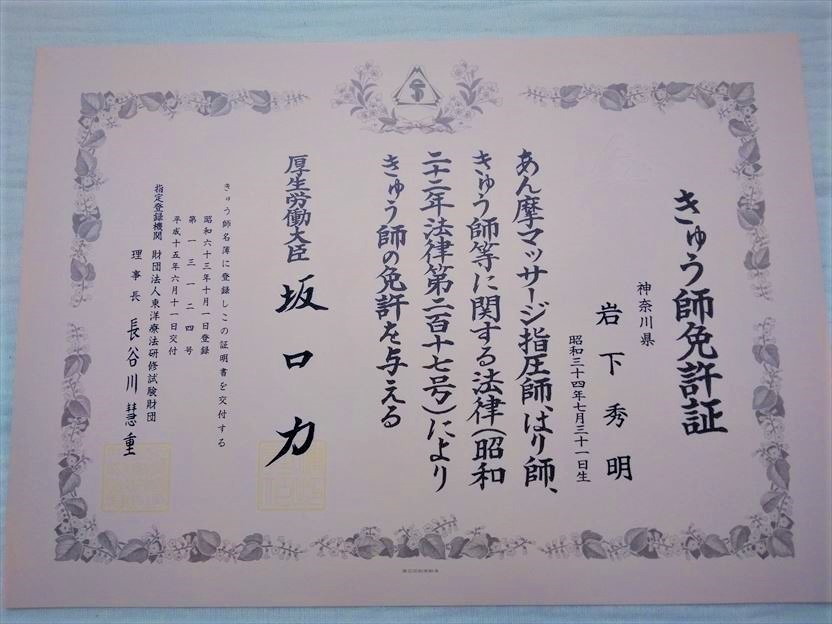 きゅう師免許証
神奈川県
岩下秀明
昭和三十四年七月三十一日生
あん摩マッサージ指圧師、はり師、
きゅう師等に関する法律(昭和
二十二年法律第二百十七号)により
きゅう師の免許を与える
厚生労働大臣 坂口力
きゅう師名簿に登録しこの証明書を交付する
昭和六十三年十月一日登録
第一三一二四号
平成十五年六月十一日交付
指定登録機関 財団法人東洋療法研修試験財団
理事長 長谷川慧重